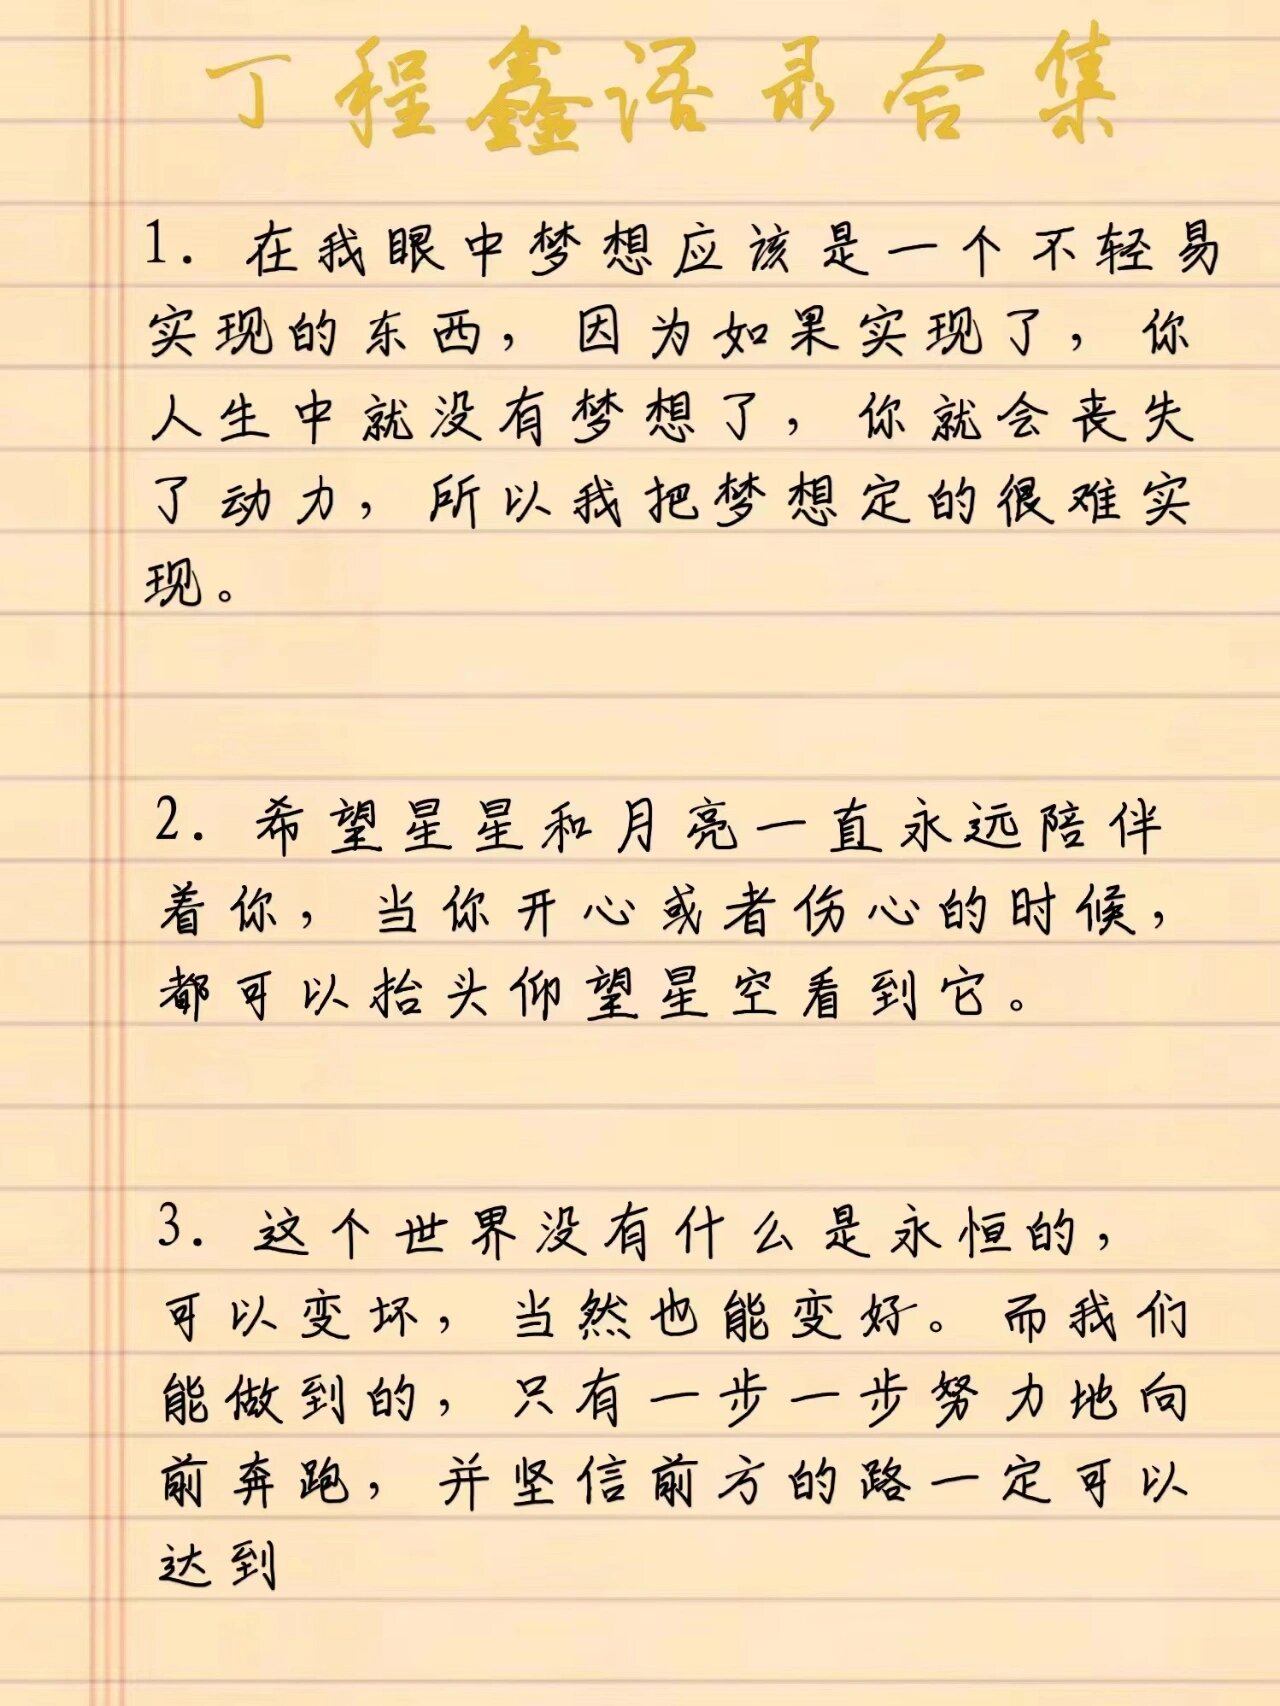 丁程鑫语录合集
1. 在我眼中梦想应该是一个不轻易
实现的东西，因为如果实现了，你
人生中就没有梦想了，你就会丧失
了动力，所以我把梦想定的很难实
现。
2. 希望星星和月亮一直永远陪伴
着你，当你开心或者伤心的时候，
都可以抬头仰望星空看到它。
3. 这个世界没有什么是永恒的，
可以变坏，当然也能变好。而我们
能做到的，只有一步一步努力地向
前奔跑，并坚信前方的路一定可以
达到